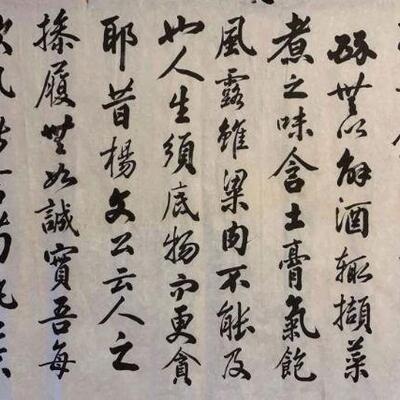 醉無以解酒輒擷菜
煮之味含土膏氣飽
風露雖梁肉不能及
也人生須底物而更貪
耶昔楊文公云人之
操履無如誠實吾每